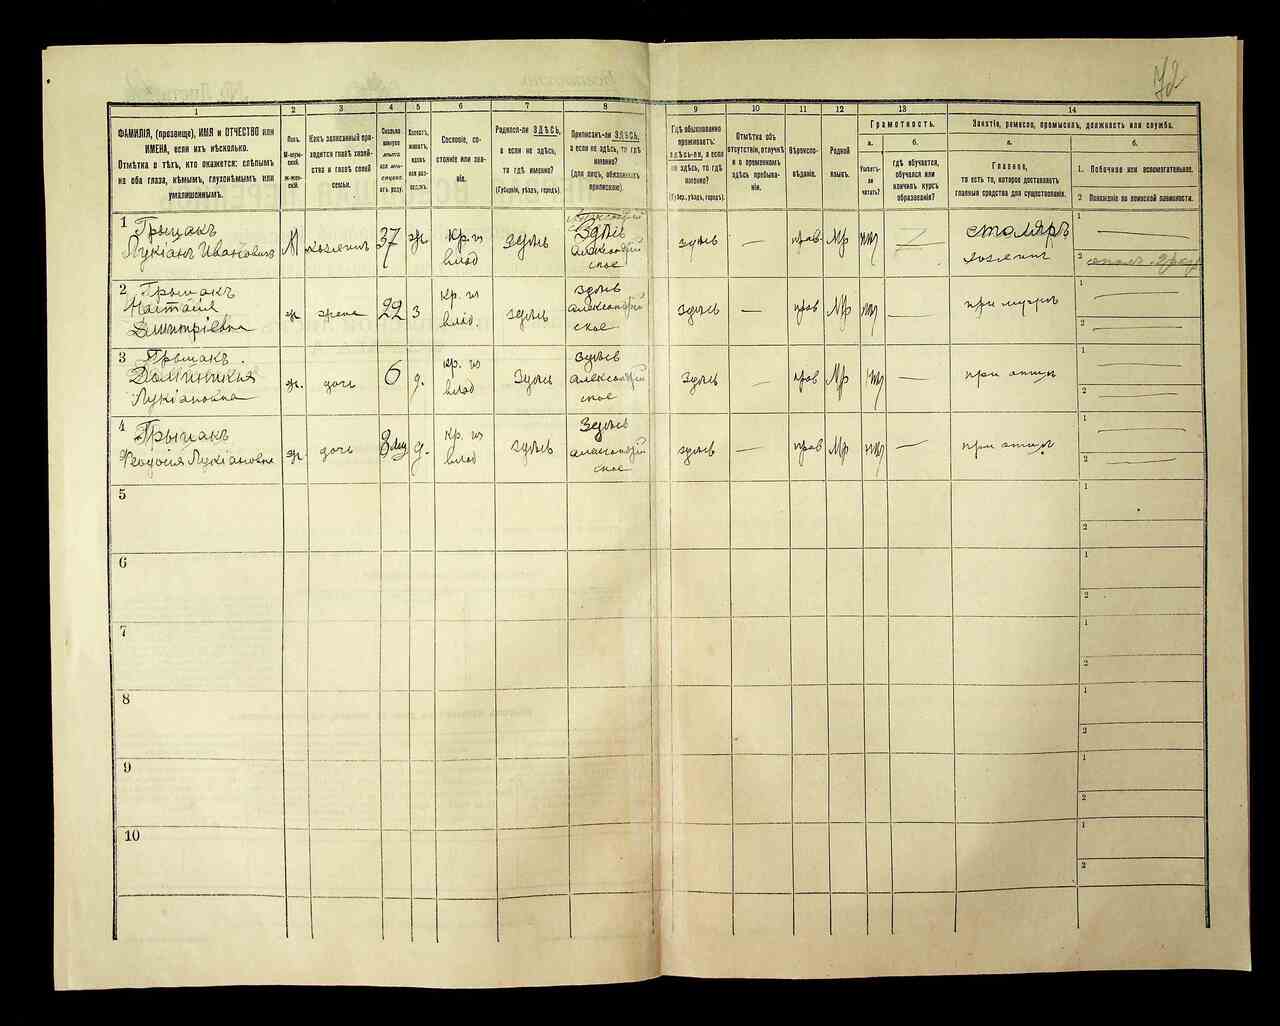 72
1 2 3 4 5 6 7 8 9 10 11 12 13 14
ФАМИЛІЯ, (прозвище), ИМЯ и ОТЧЕСТВО или
ИМЕНА, если ихъ нѣсколько.
Отмѣтка о тѣхъ, кто окажется: слѣпымъ
на оба глаза, нѣмымъ, глухонѣмымъ или
умалишеннымъ.
Полъ.
М-мужской.
Ж-женскій.
Какъ записанный приходится главѣ хозяйства и главѣ своей
семьи.
Сколько
минуло
лѣтъ
или мѣсяцевъ
отъ роду.
Холостъ,
женатъ,
вдовъ
или разведенъ.
Сословіе, состояніе или званіе.
Родился-ли ЗДѢСЬ,
а если не здѣсь,
то гдѣ именно?
(Губернія, уѣздъ, городъ).
Приписанъ-ли ЗДѢСЬ,
а если не здѣсь, то гдѣ
именно?
(для лицъ, обязанныхъ
припискою).
Гдѣ обыкновенно
проживаетъ:
здѣсь-ли, а если
не здѣсь, то гдѣ
именно?
(Губер., уѣздъ, городъ).
Отмѣтка объ
отсутствіи, отлучкѣ
и о временномъ
здѣсь пребываніи.
Вѣроисповѣданіе.
Родной
языкъ.
Грамотность.
а. б.
Умѣетъ-ли
читать?
гдѣ обучается,
обучался или
кончилъ курсъ
образованія?
Занятіе, ремесло, промыселъ, должность или служба.
а. б.
Главное,
то есть то, которое доставляетъ
главныя средства для существованія.
1. Побочное или вспомогательное.
2 Положеніе по воинской повинности.
1 Грыцакъ
Лукіанъ Ивановичъ М хозяинъ 37 ж Кр. из влад здѣсь Здѣсь александрійское здѣсь — прав Мр нѣт столяръ хозяинъ 1 — 2
2 Грыцакъ
Настасія
Дмитріевна ж жена 22 з Кр. из влад. здѣсь здѣсь александрійское здѣсь — прав Мр нѣт — при мужѣ 1 — 2 —
3 Грыцакъ
Домникія
Лукіановна ж. дочь 6 д. кр. из влад здѣсь здѣсь александрійское здѣсь — прав Мр нѣт — при отцѣ 1 — 2 —
4 Грыцакъ
Феодосія Лукіановна ж. дочь 8 мц д. Кр. из влад здѣсь Здѣсь александрійское здѣсь — прав Мр нѣт — при отцѣ 1 — 2 —
5 1 2
6 1 2
7 1 2
8 1 2
9 1 2
10 1 2